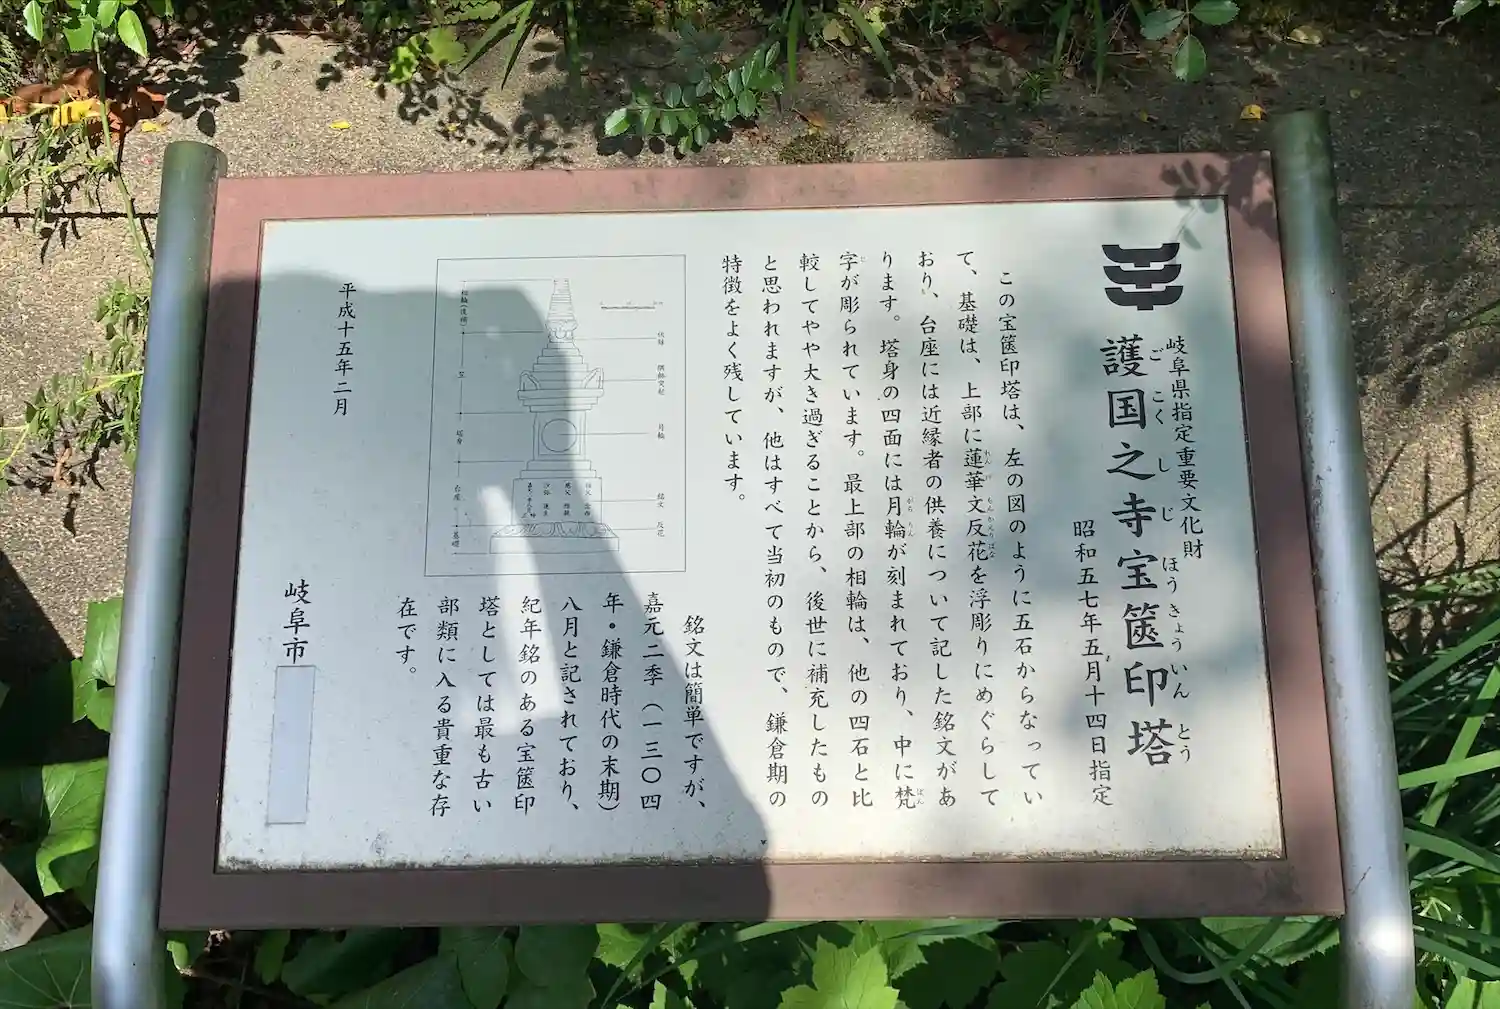 岐阜県指定重要文化財
護国之寺宝篋印塔
ごこくしじほうきょういんとう
昭和五七年五月十四日指定
この宝篋印塔は、左の図のように五石からなってい
て、基礎は、上部に蓮華文反花を浮彫りにめぐらして
れんげもんかえりばな
おり、台座には近縁者の供養について記した銘文があ
ります。塔身の四面には月輪が刻まれており、中に梵
がちりん
ぼん
字が彫られています。最上部の相輪は、他の四石と比
じ
較してやや大き過ぎることから、後世に補充したもの
と思われますが、他はすべて当初のもので、鎌倉期の
特徴をよく残しています。
銘文は簡単ですが、
嘉元二季（一三〇四
年・鎌倉時代の末期）
八月と記されており、
紀年銘のある宝篋印
塔としては最も古い
部類に入る貴重な存
在です。
相輪(後補)
笠
塔身
台座
基礎
伏鉢
隅飾突起
月輪
銘文
反花
平成十五年二月
岐阜市